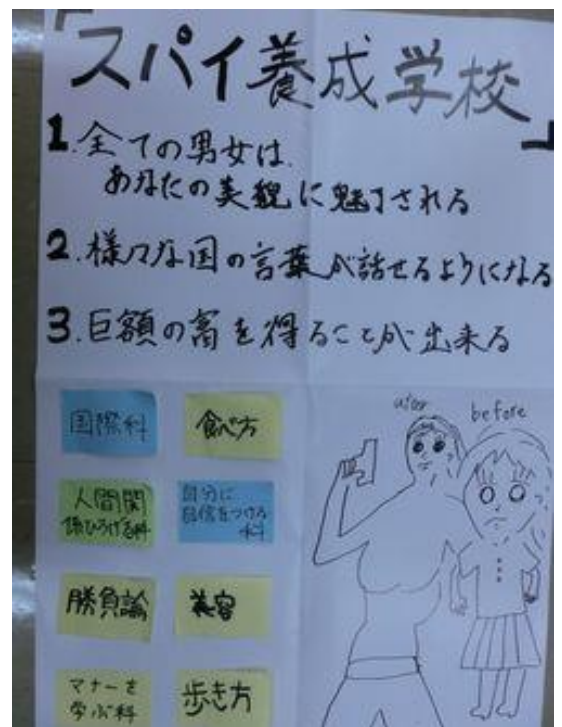 「スパイ養成学校」
1.全ての男女は
あなたの美貌に魅了される
2.様々な国の言葉が話せるようになる
3.巨額の富を得ることが出来る
国際科
食べ方
人間関
係ひろげる科
自分に
自信をつける
科
勝負論
美容
マナーを
学ぶ科
歩き方
after
before